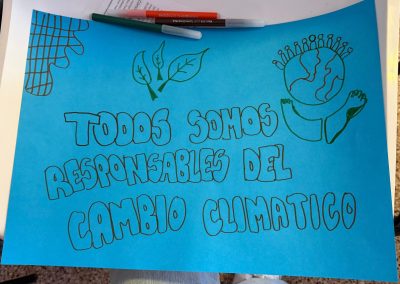 TODOS SOMOS
RESPONSABLES DEL
CAMBIO CLIMATICO